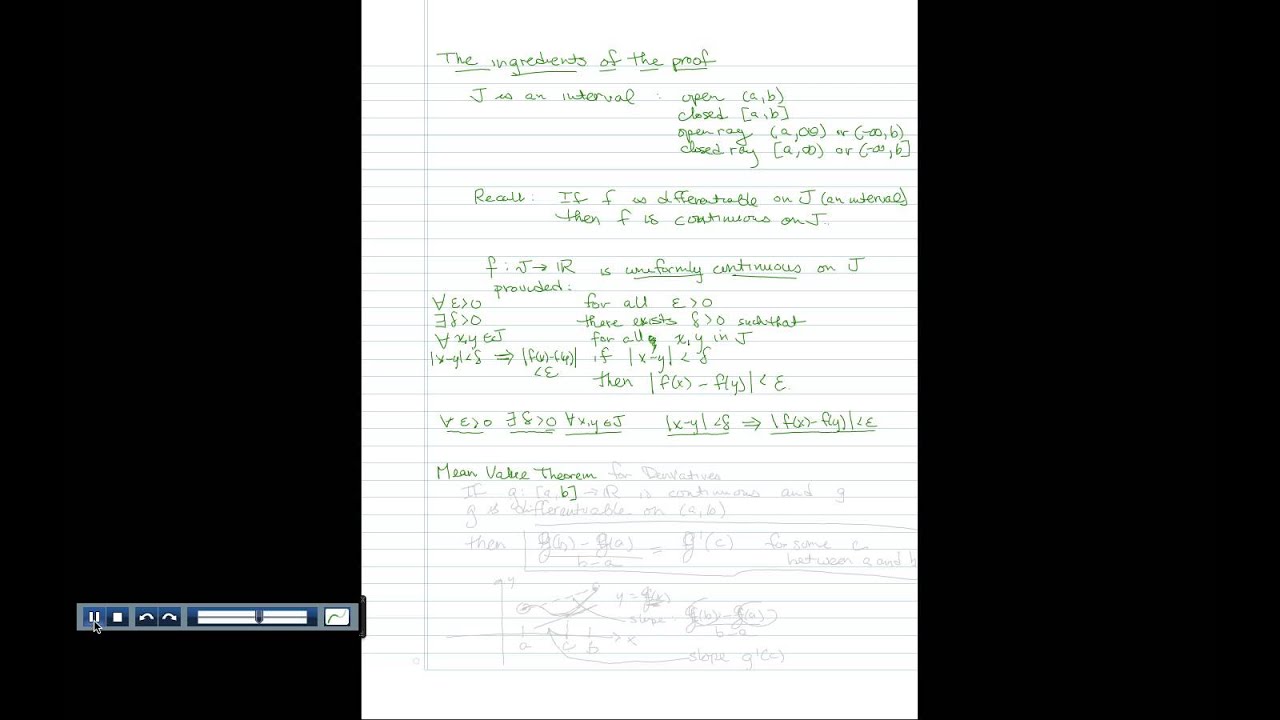 The ingredients of the proof
J is an interval : open (a,b)
closed [a,b]
open ray (a,∞) or (-∞,b)
closed ray [a,∞) or (-∞,b]
Recall: If f is differentiable on J (an interval)
then f is continuous on J.
f : J → ℝ is uniformly continuous on J
provided:
∀ ε>0 for all ε>0
∃ δ>0 there exists δ>0 such that
∀ x,y ∈ J for all x, y in J
|x-y|<δ ⇒ |f(x)-f(y)| if |x-y| < δ
<ε
then |f(x) - f(y)| < ε.
∀ ε>0 ∃ δ>0 ∀ x,y ∈ J |x-y| <δ ⇒ |f(x)-f(y)| <ε
Mean Value Theorem for Derivatives
If g: [a,b] → ℝ is continuous and g
g is differentiable on (a,b)
then g(b) - g(a) / b-a = g'(c) for some c
between a and b
y
y = g(x)
slope: g(b) - g(a) / b-a
a c b x
slope g'(c)